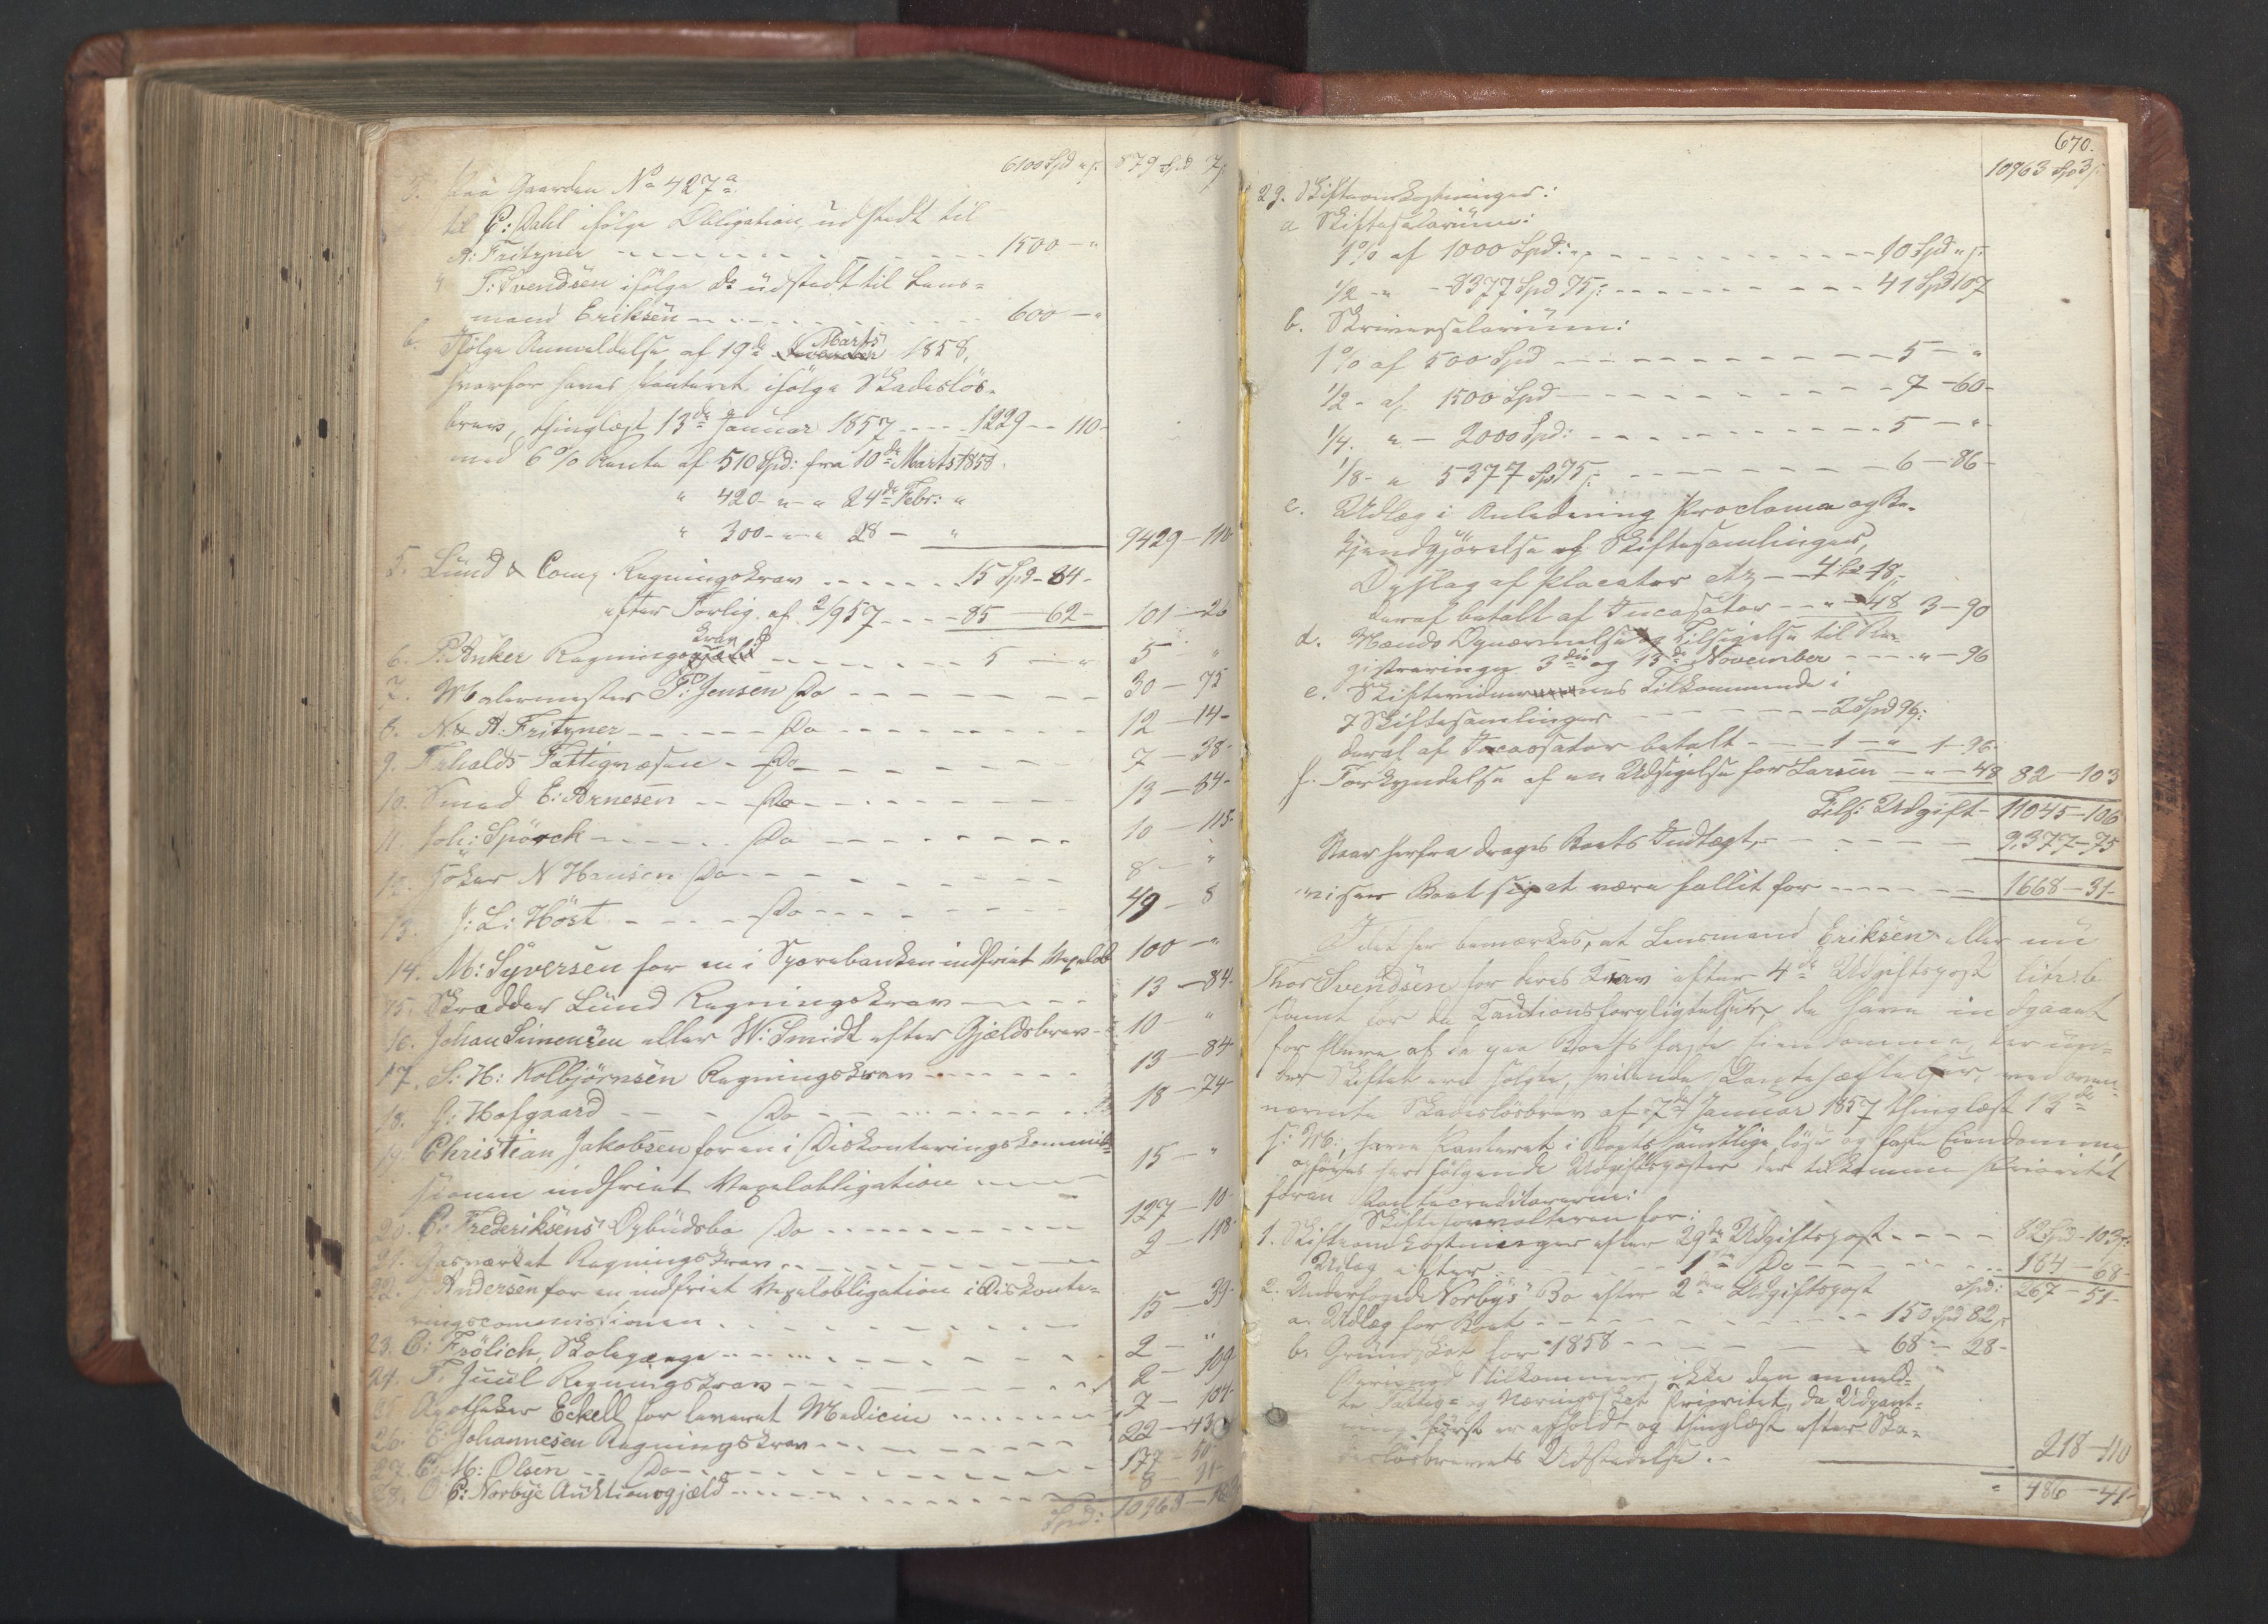 6100 Spd " s. 879 Spd 7 s.
paa Gaarden No 427a.
til C: Dahl ifölge Obligation udstedt til
A: Fritzner - - - 1500 - "
" T: Svendsen ifölge do udstedt til Lens=
mand Eriksen - - - 600 - "
b. Ifölge Anmeldelse af 19de Marts 1858,
hvorfor haves Panteret ifölge Skadeslös-
brev, thinglæst 13de Januar 1857 - - - 1229 - 110 -
med 6 % Rente af 510 Spd: fra 10de Marts 1858.
" 420 - " - " 24de Febr: "
" 300 - " - " 28 - " 9429 - 110
5. Lund & Comp Regningskrav - - - 15 Spd - 84 -
efter Forlig af 2/9 57 - - - 85 - 62 - 101 - 26
6. P. Anker Regningskrav - - - 5 - " 5 - "
7. Malermester F: Jensen Do - - - 30 - 75
8. N & A: Fritzner - - - Do - - - 12 - 14 -
9. Fattigvæsen - Do - - - 7 - 38 -
10. Smed E: Arnesen - - - Do - - - 13 - 84 -
11. Joh: Spörck - - - Do - - - 10 - 115 -
12. N Hansen Do - - - 8 - "
13. J: L: Höst - - - Do - - - 49 - 8
14. M: Syversen for en i Sparebanken indfriet Vexelobl 100 - "
15. Skrædder Lund Regningskrav - - - 13 - 84 -
16. Johan Simensen eller W: Smidt efter Gjeldsbrev - 10 - "
17. S: H: Kolbjörnsen Regningskrav - - - 13 - 84
18. J: Hofgaard - - - Do - - - 18 - 74 -
19. Christian Jakobsen for en i Diskonteringskommis=
sionen indfriet Vexelobligation - - - 15 - "
20. C: Frederiksens Opbudsbo Do - - - 127 - 10 -
21. Gasværket Regningskrav - - - 2 - 118 -
22. J: Andersen for en indfriet Vexelobligation i Diskonte=
ringscommissionen - - - 15 - 39 -
23. C: Frölich, Skolepenge - - - 2 - "
24. F: Juul Regningskrav - - - 2 - 109 -
25. Apotheker Eckell for leveret Medicin - - - 7 - 104 -
26. E: Johannesen Regningskrav - - - 22 - 43
27. C: M: Olsen - - Do - - - 177 - 50
28. C: Norbye Auktionsgjæld - - - 8 - 31 -
Spd: 10963 -
670.
10963 Spd 3 s.
29. Skifteomkostninger:
a Skiftesalarium:
1 % af 1000 Spd: - - - 10 Spd " s.
1/2 - " - 8377 Spd 75 s: - - - 41 Spd 107
b. Skriversalarium:
1 % af 500 Spd - - - 5 - "
1/2 - af 1500 Spd - - - 7 - 60 -
1/4. " - 2000 Spd: - - - 5 - " -
1/8 - " 5377 Spd 75 s: - - - 6 - 86 -
c. Udlæg i Anledning Proclama og Be-
kjendtgjörelse af Skiftesamlinger,
Opslag af Placater etz - - 4 Spd 18 s
deraf betalt af Incassator - - " - 48 3 - 90
d. Mænds Opnævnelse og Tilsigelse til Re-
gistreringen 3die og 13de November - - - " - 96
e. Skiftevidnernes Tilkommende i
7 Skiftesamlinger - - - 2 Spd 96 s:
deraf af Incassator betalt - - - 1 - " 1 - 96
f. Forkyndelse af en Udsigelse for Larsen - " - 48 82 - 103
Tils: Udgift - 11045 - 106
Naar herfra drages Boets Indtægt, - - - 9,377 - 75
viser Boet sig at være fallit for - - - 1668 - 31 -
Idet her bemærkes, at Lensmand Eriksen eller nu
Thor Svendsen for deres Krav efter 4de Udgiftspost litr: b
samt for de Cautionsforpligtelser, de have indgaaet
for flere af de paa Boets faste Eiendomme, der un=
der Skiftet ere solgte, hvilende Pantehæftelser, ved oven-
nævnte Skadeslösbrev af 7de Januar 1857 thinglæst 13de
s: M:, have Panteret i Boets samtlige löse og faste Eiendomme,
opföres her fölgende Udgiftsposter der tilkomme Prioritet
foran Pantecreditorerne:
Skifteforvalteren for:
1. Skifteomkostninger efter 29de Udgiftspost - - - 82 Spd - 103 s:
Udlæg efter - - - 1ste Do - - - 184 - 68 -
2. Underfoged Norbys Bo efter 2den Udgiftspost Spd: 267 - 51 -
a. Udlæg for Boet - - - 150 Spd 82 s
b. Grundskat for 1858 - - - 68 - 28 -
Övrigt tilkommer ikke den anmeld=
te Fattig= og Næringsskat Prioritet, da Udpant=
ning först er afholdt og thinglæst efter Ska=
deslösbrevets Udstedelse. - 218 - 110
" 486 - 41 -